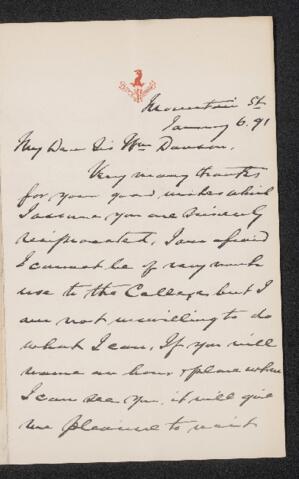 Mountain St
January 6. 91
My Dear Sir Wm Dawson,
Very many thanks
for your good wishes which
I assure you are sincerely
reciprocated, I am afraid
I cannot be of very much
use to the College, but I
am not unwilling to do
what I can. If you will
name an hour & place where
I can see you, it will give
me pleasure to visit